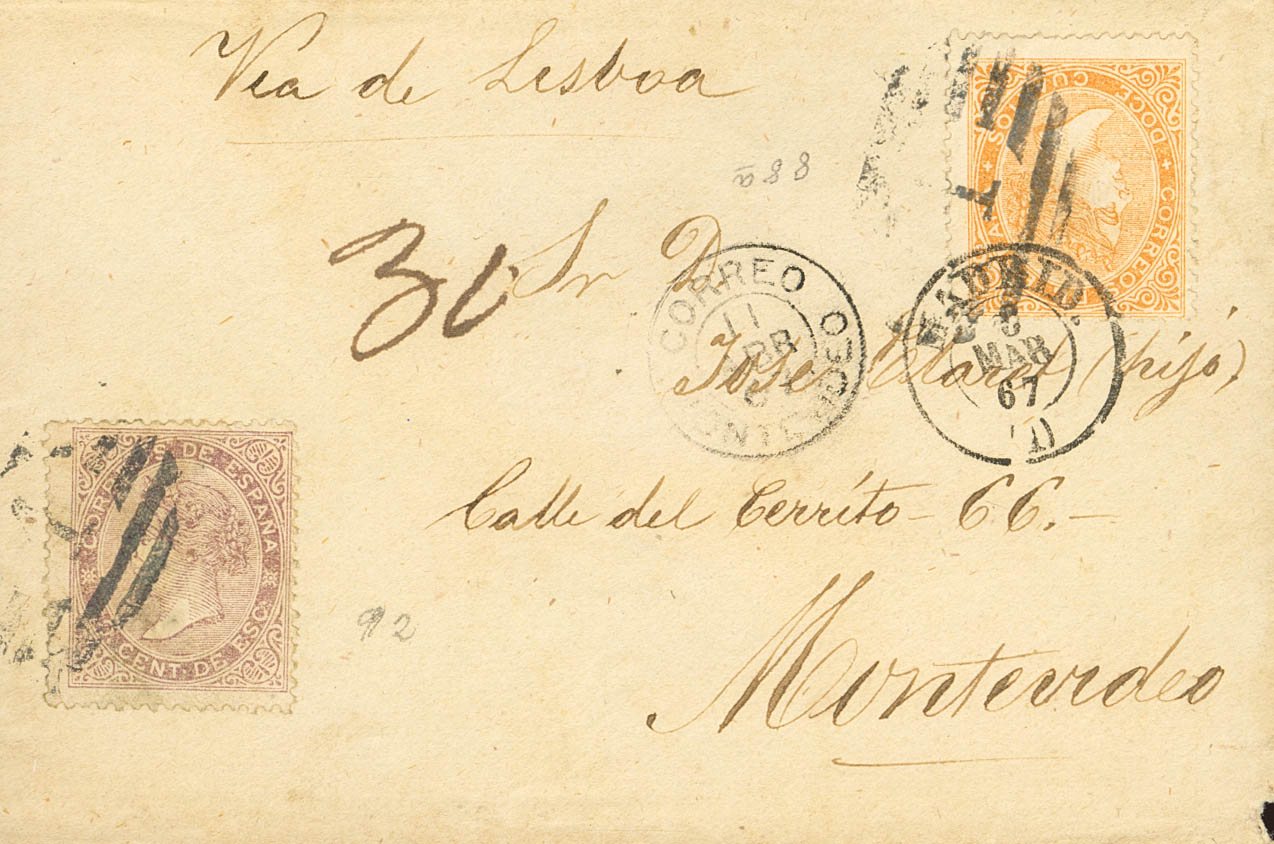 Via de Lisboa
CORREOS DE ESPAÑA
DOCE CUARTOS
1
ñ88
30
Sr D.
CORREO
MONTEVIDEO
11
ABR
MADRID.
8
MAR
67
(1)
Jose Claret (hijo)
CORREOS DE ESPAÑA
CENT. DE ESCO
Calle del Cerrito - 66. -
92
Montevideo